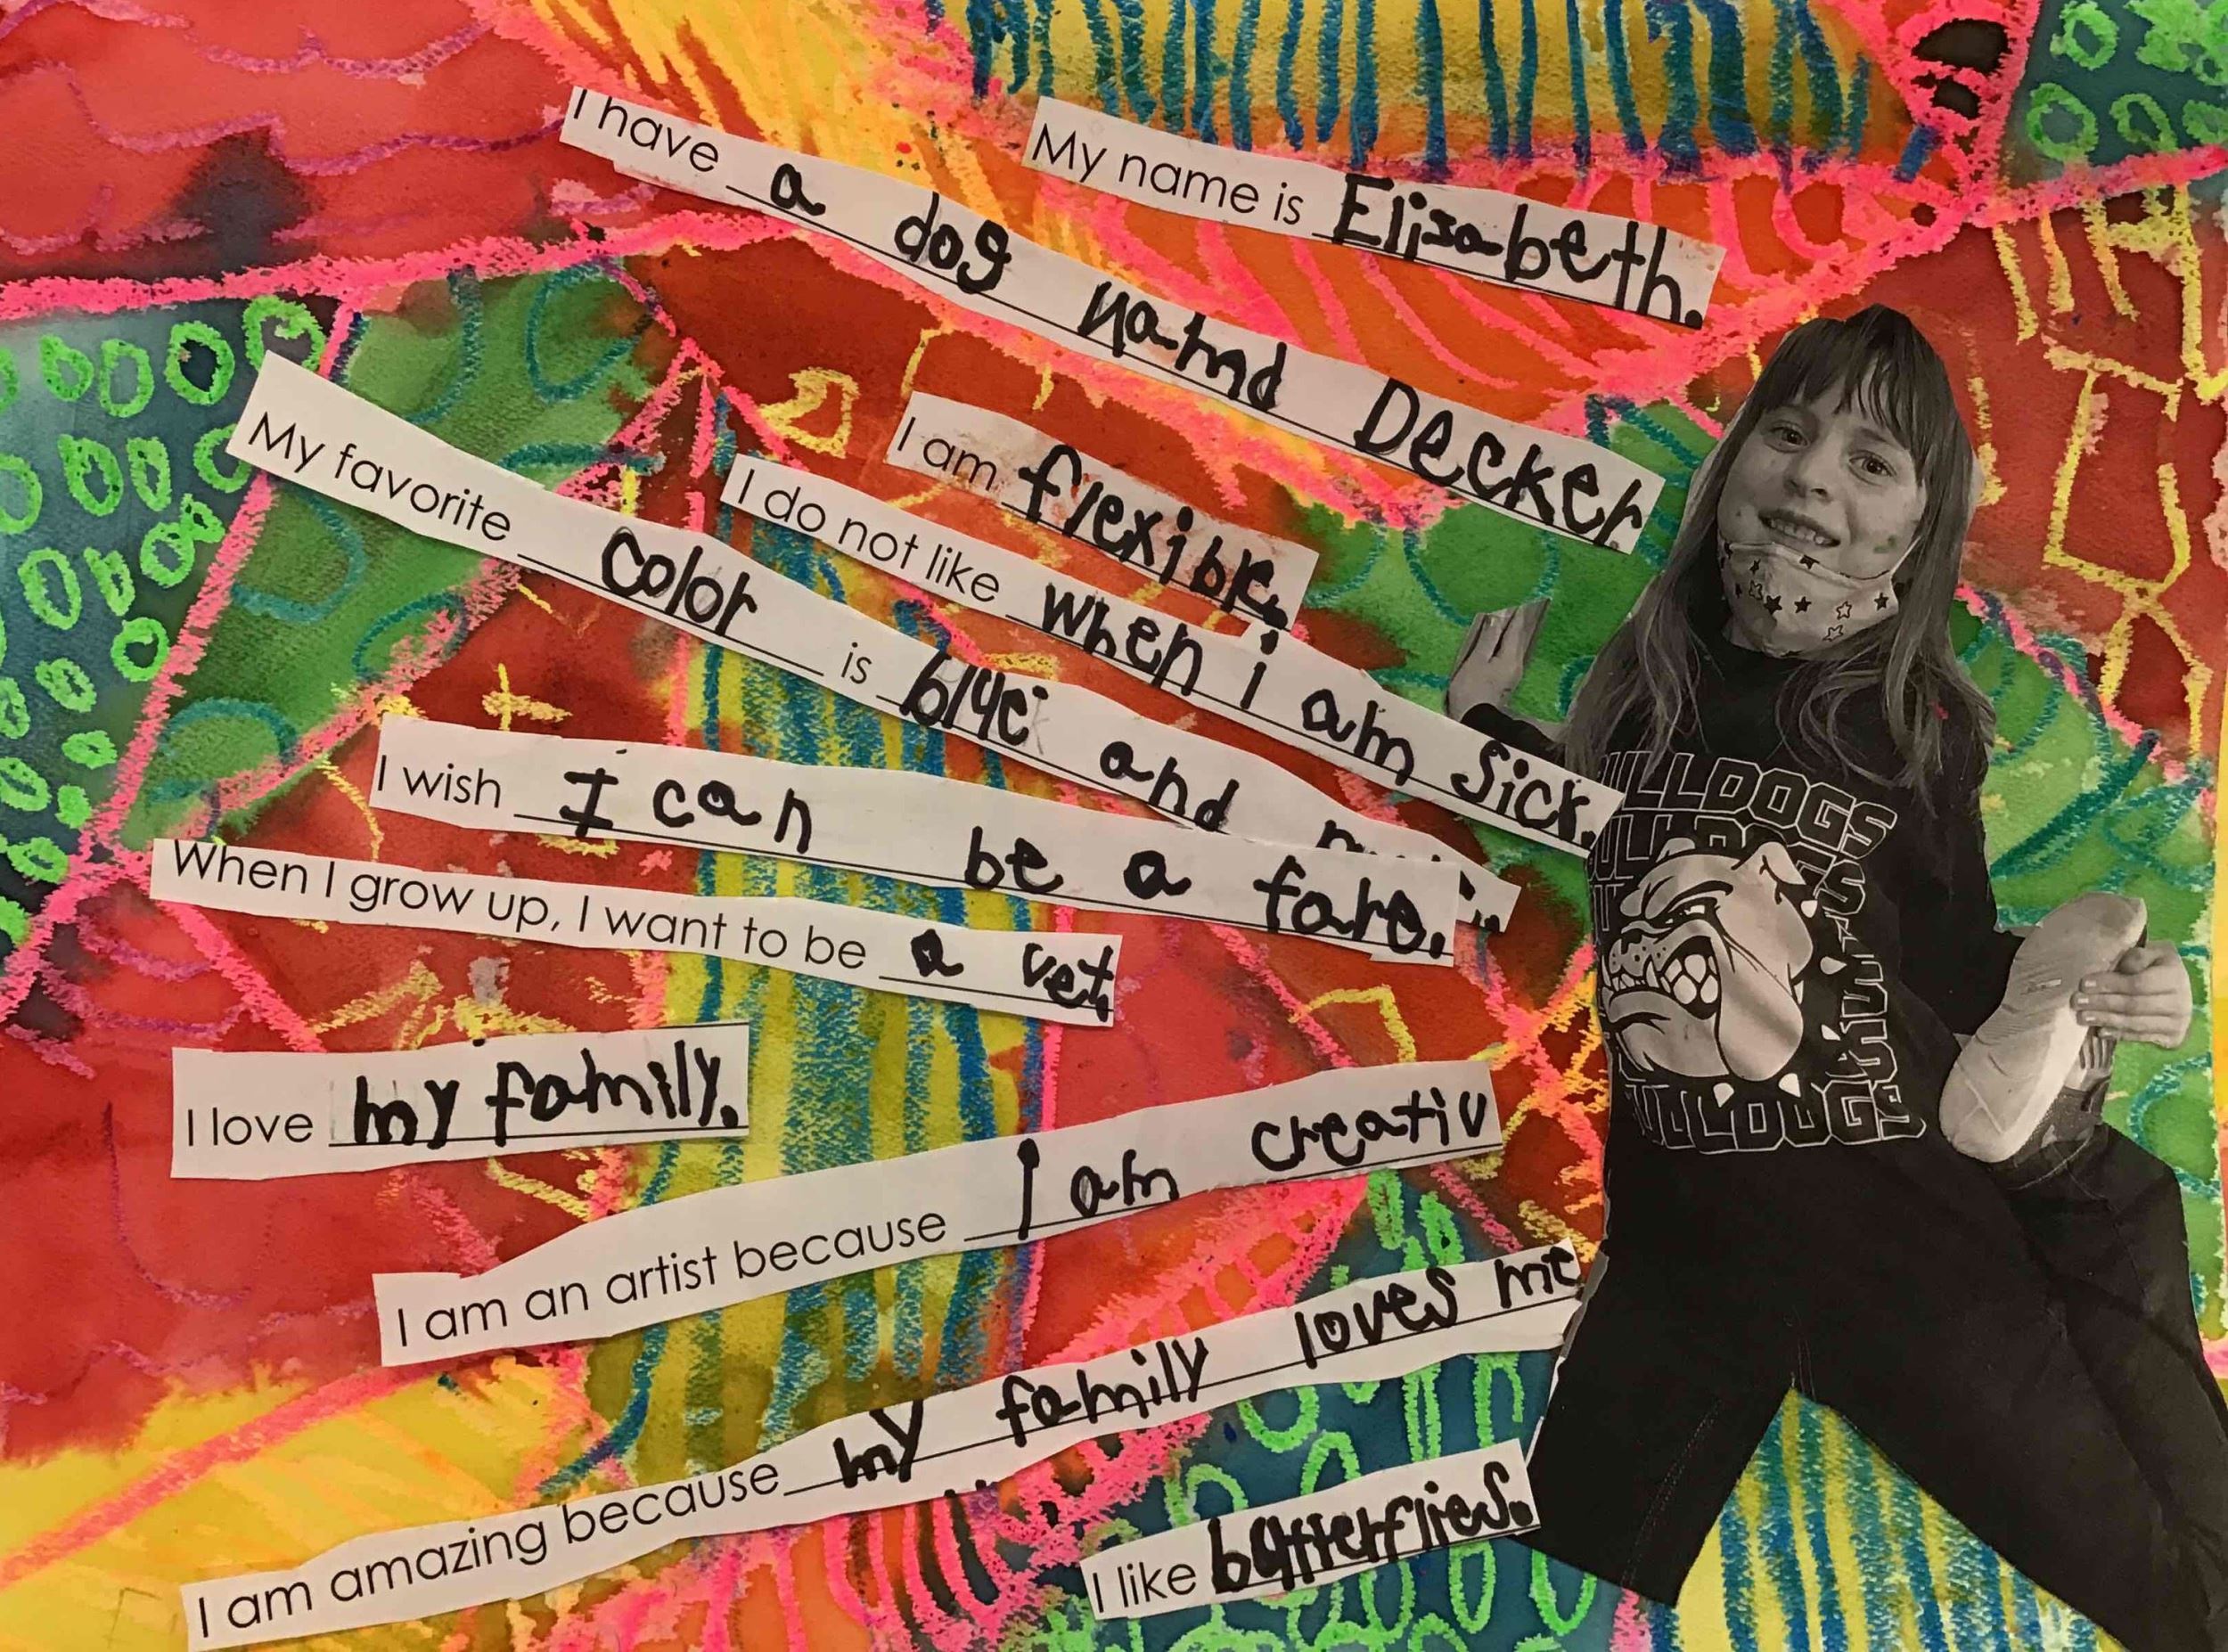 My name is Elisabeth.
I have a dog namd Decker.
I am flexible.
I do not like when i am sick.
My favorite color is blue and
I wish I can be a fare.
When I grow up, I want to be a vet.
I love my family.
I am an artist because I am creativ
I am amazing because my family loves me
I like butterflies.
BULLDOGS
BULLDOGS
BULLDOGS